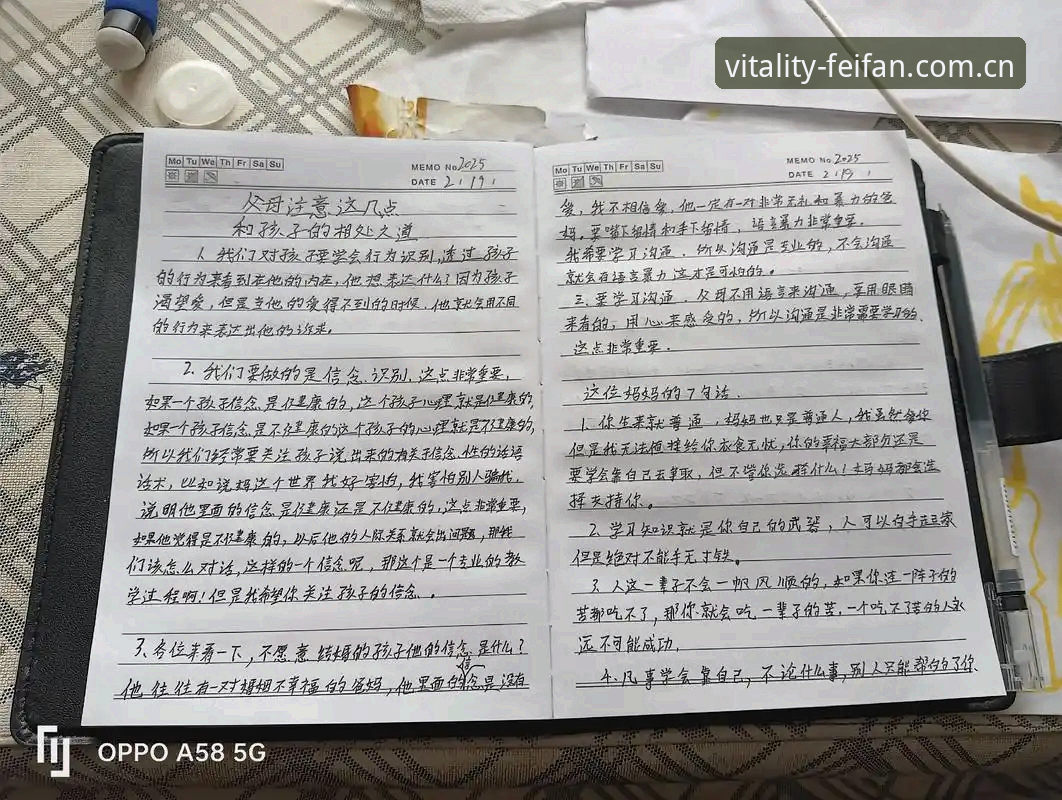 vitality-feifan.com.cn
Mo Tu We Th Fr Sa Su
MEMO No. 2025
DATE 2 / 19 /
父母注意这几点
和孩子的相处之道
1. 我们对孩子要学会行为识别,透过孩子
的行为来看到在他的内在,他想表达什么?因为孩子
渴望爱,但是当他的爱得不到的时候,他就会用不同
的行为来表达出他的诉求。
2. 我们要做的是信念识别,这点非常重要,
如果一个孩子信念是健康的,这个孩子心理就是健康的,
如果一个孩子信念是不健康的这个孩子的心理就是不健康的,
所以我们经常要关注孩子说出来的有关于信念性的话语
话术,比如说妈这个世界我好害怕,我害怕别人骗我,
说明他里面的信念是健康还是不健康的,这点非常重要,
如果他觉得是不健康的,以后他的人际关系就会出问题,那我
们该怎么对话,这样的一个信念呢,那这个是一个专业的教
学过程啊!但是我希望你关注孩子的信念。
3、各位来看一下,不愿意结婚的孩子他的信念是什么?
他往往有一对婚姻不幸福的爸妈,他里面的信念是没有
Mo Tu We Th Fr Sa Su
MEMO No. 2025
DATE 2 / 19 /
爱,我不相信爱,他一定有一对非常无礼和暴力的爸
妈,要嘴下留情和手下留情,语言暴力非常重要。
我希望学习沟通,所以沟通是专业的,不会沟通
就会有语言暴力这才是可怕的。
三、要学习沟通,父母不用语言来沟通,拿用眼睛
来看的,用心来感受的,所以沟通是非常需要学习的,
这点非常重要。
这位妈妈的7句话
1. 你生来就普通,妈妈也只是普通人,我虽然爱你
但是我无法 给你衣食无忧,你的幸福大部分还是
要学会靠自己去争取,但不管你选择什么!妈妈都会选
择支持你。
2. 学习知识就是你自己的武器,人可以白手起家
但是绝对不能手无寸铁。
3. 人这一辈子不会一帆风顺的,如果你连一阵子的
苦都吃不了,那你就会吃一辈子的苦,一个吃不了苦的人永
远不可能成功。
4. 凡事学会靠自己,不论什么事,别人只能帮你 了你
OPPO A58 5G